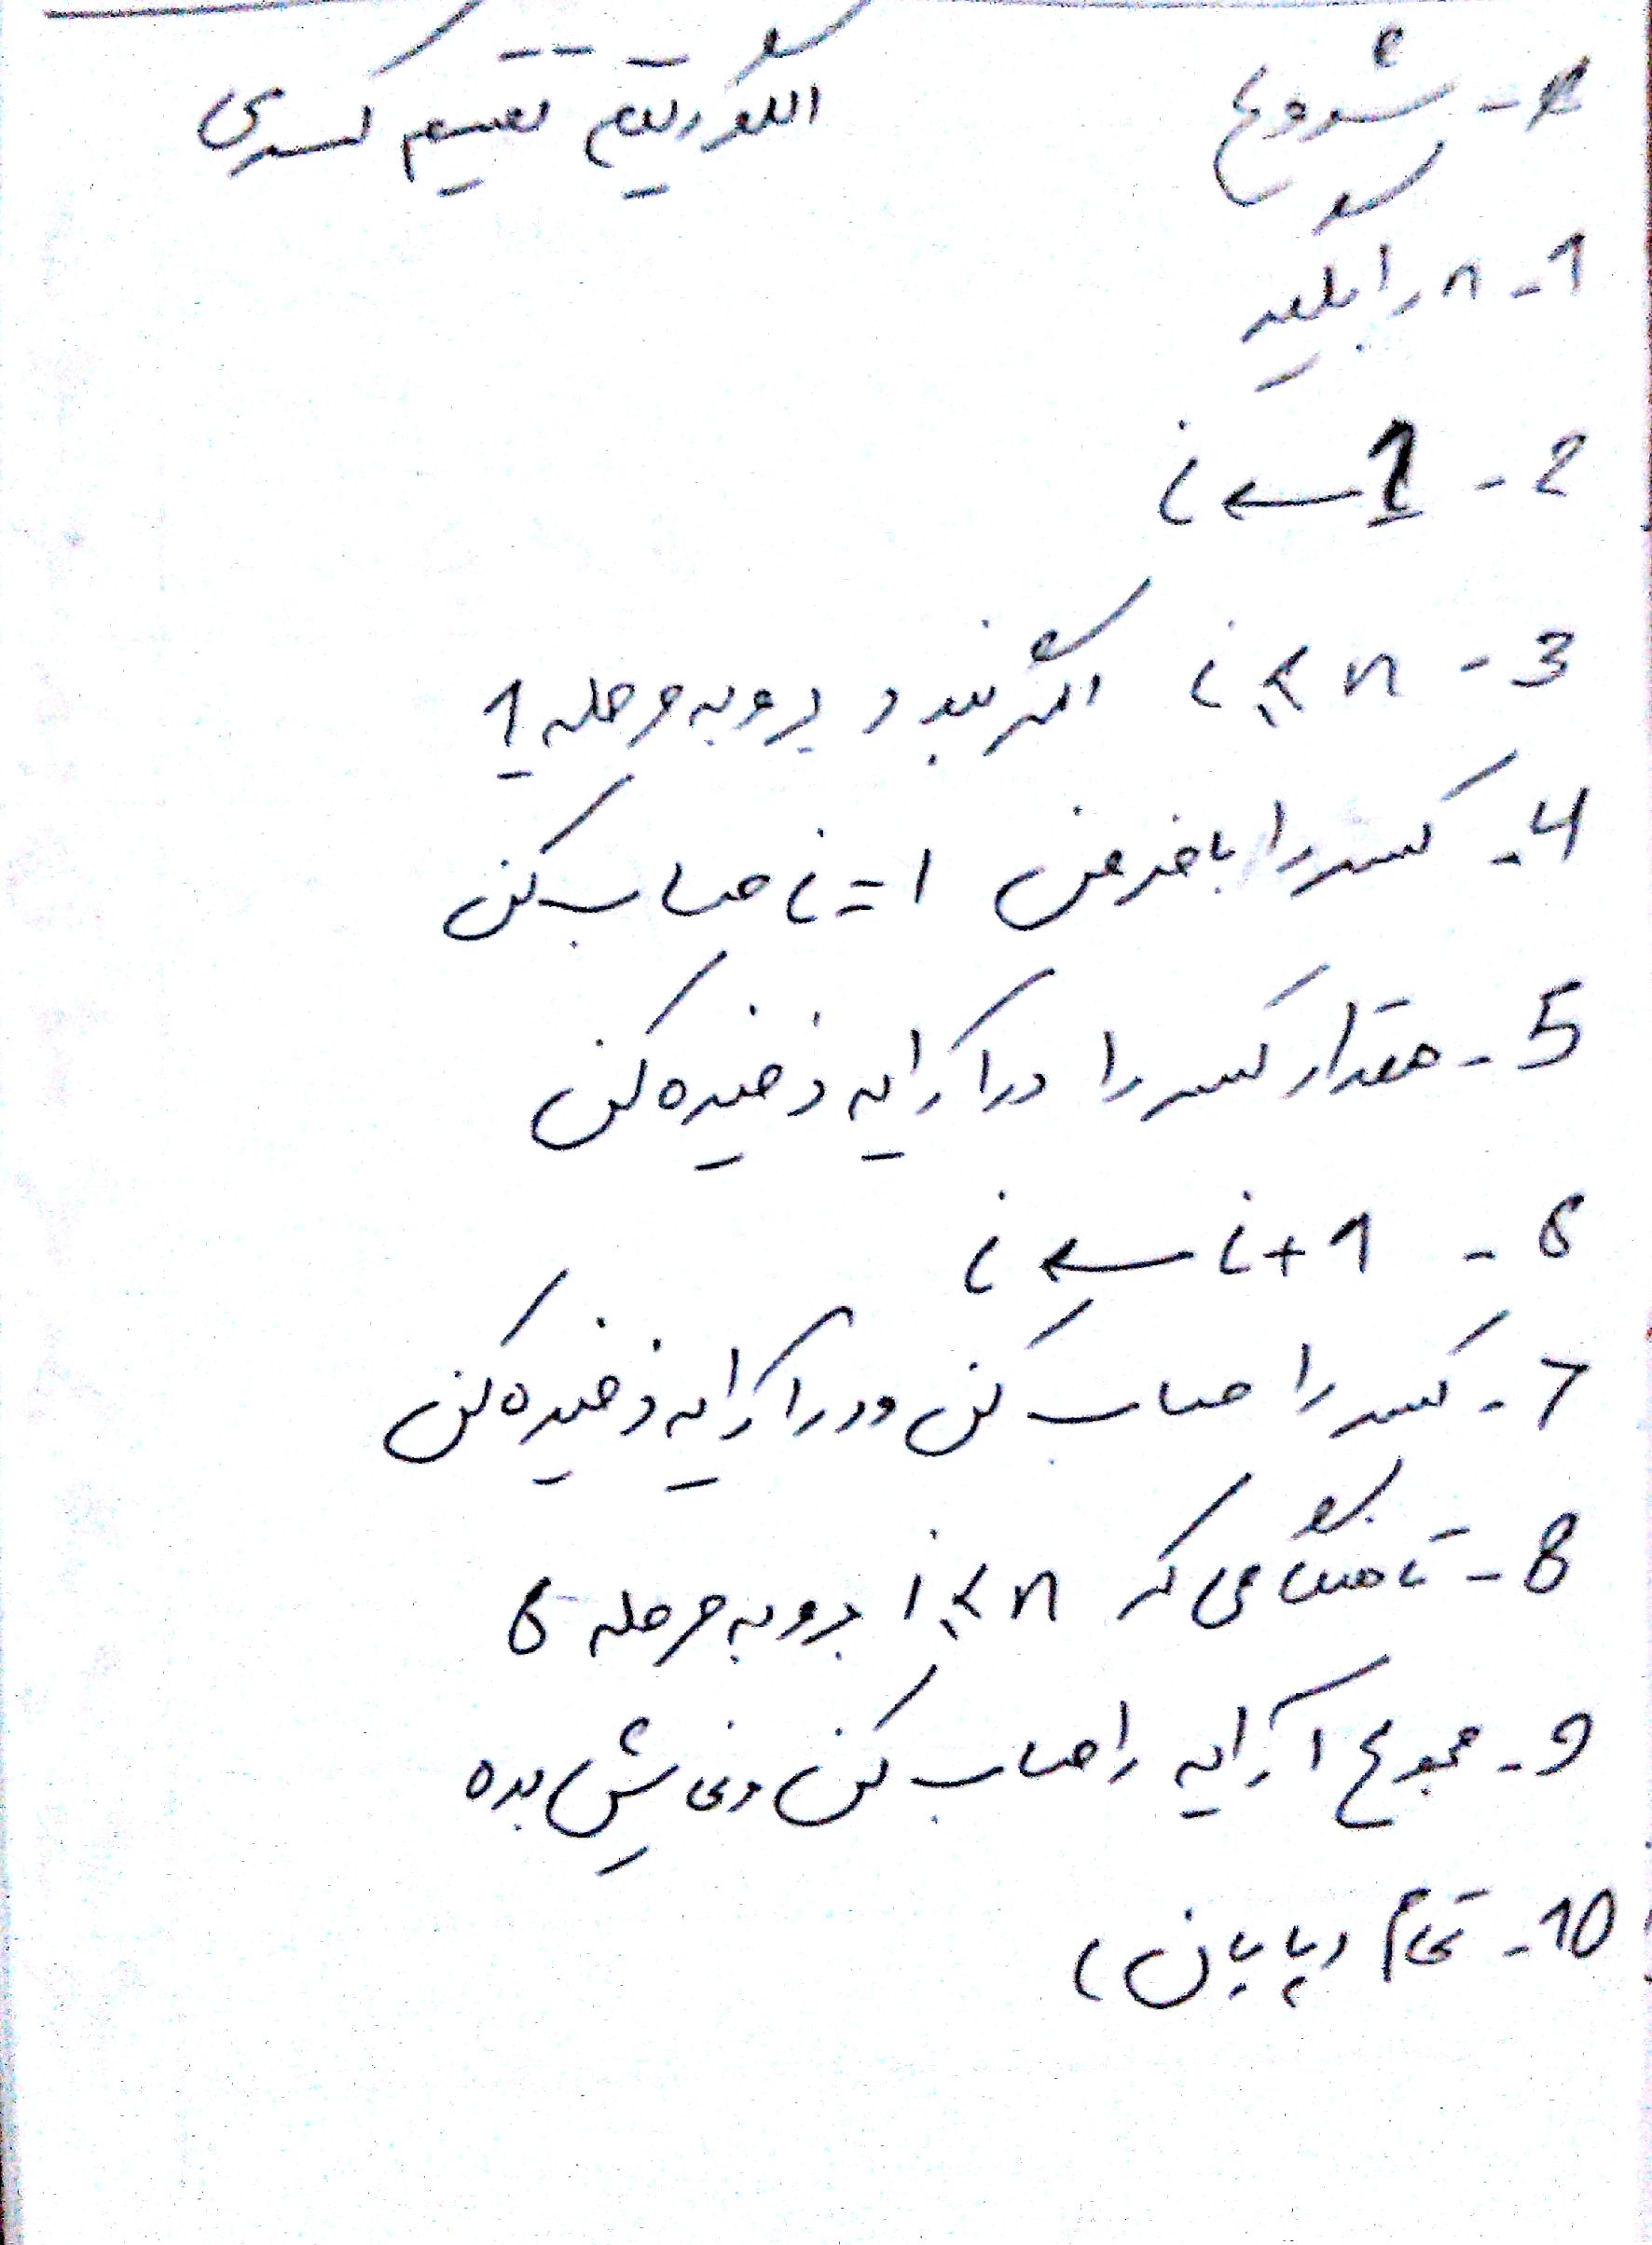 شروع - الگوریتم تقسیم کسری
1- n را بگیر
2- i ← 1
3- i ≤ n اگر نبود برو به مرحله 1
4- کسر را با فرض i = 1 حساب کن
5- مقدار کسر را در آرایه ذخیره کن
6- i ← i + 1
7- کسر را حساب کن و در آرایه ذخیره کن
8- تا هنگامی که i ≤ n برو به مرحله 6
9- مجموع آرایه را حساب کن و نمایش بده
10- تمام (پایان)